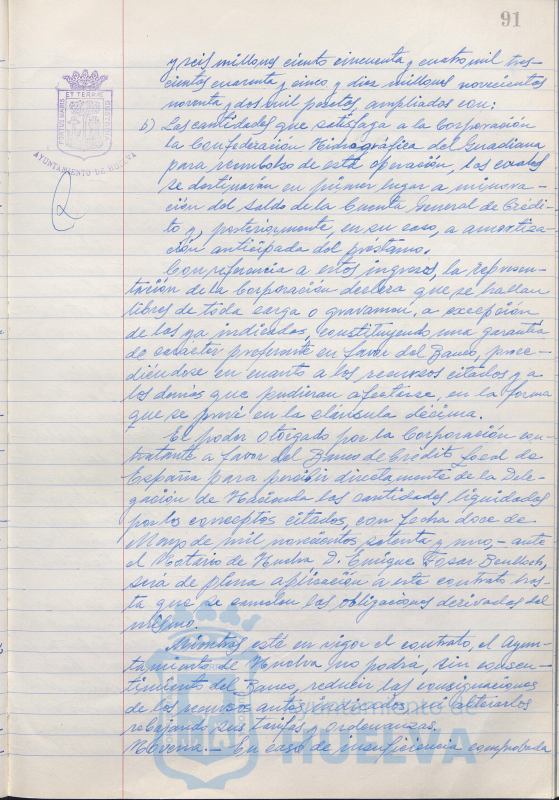 91
y seis millones ciento cincuenta y cuatro mil tres-
cientas cuarenta y cinco y diez millones novecientas
noventa y dos mil pesetas, ampliados con:
b) Las cantidades que satisfaga a la Corporación
la Confederación Hidrográfica del Guadiana
para reembolso de esta operación, las cuales
se destinarán en primer lugar a minora-
ción del saldo de la Cuenta General de Crédi-
to y, posteriormente, en su caso, a amortiza-
ción anticipada del préstamo.
Con referencia a estos ingresos, la represen-
tación de la Corporación declara que se hallan
libres de toda carga o gravamen, a excepción
de los ya indicados, constituyendo una garantía
de carácter preferente en favor del Banco, proce-
diéndose en cuanto a los recursos citados y a
los demás que pudieran afectarse, en la forma
que se prevé en la cláusula décima.
El poder otorgado por la Corporación con-
tratante a favor del Banco de Crédito Local de
España para percibir directamente de la Dele-
gación de Hacienda las cantidades liquidadas
por los conceptos citados, con fecha doce de
Mayo de mil novecientos setenta y uno, ante
el Notario de Huelva D. Enrique
será de plena aplicación a este contrato has-
ta que se cancelen las obligaciones derivadas del
mismo.
Mientras esté en vigor el contrato, el Ayun-
tamiento de Huelva no podrá, sin consen-
timiento del Banco, reducir las consignaciones
de los recursos antes indicados, ni alterarlos
rebajando sus tarifas y ordenanzas.
Novena.- En caso de insuficiencia comprobada
AYUNTAMIENTO DE HUELVA
PORTUS MARIS ET TERRAE CUSTODIA
Ayuntamiento de
HUELVA